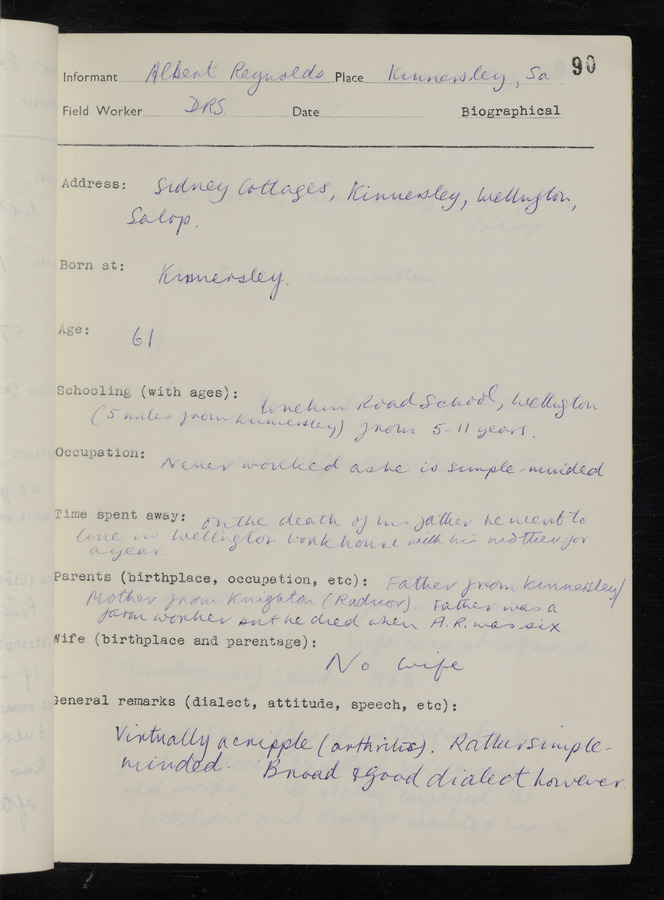 90
Informant Albert Reynolds Place Kinnersley, Sa
Field Worker DRS Date Biographical
Address: Sidney Cottages, Kinnersley, Wellington,
Salop.
Born at: Kinnersley.
Age: 61
Schooling (with ages): Road School, Wellington
(5 miles from Kinnersley) from 5-11 years.
Occupation: Never worked as he is simple-minded.
Time spent away: on the death of his father he went to
live in Wellington workhouse with his mother for
a year.
Parents (birthplace, occupation, etc): Father from Kinnersley/
Mother from Knighton (Radnor). Father was a
farm worker but he died when A.R. was six.
Wife (birthplace and parentage):
No wife
General remarks (dialect, attitude, speech, etc):
Virtually a cripple (arthritis). Rather simple-
minded. Broad & good dialect however.